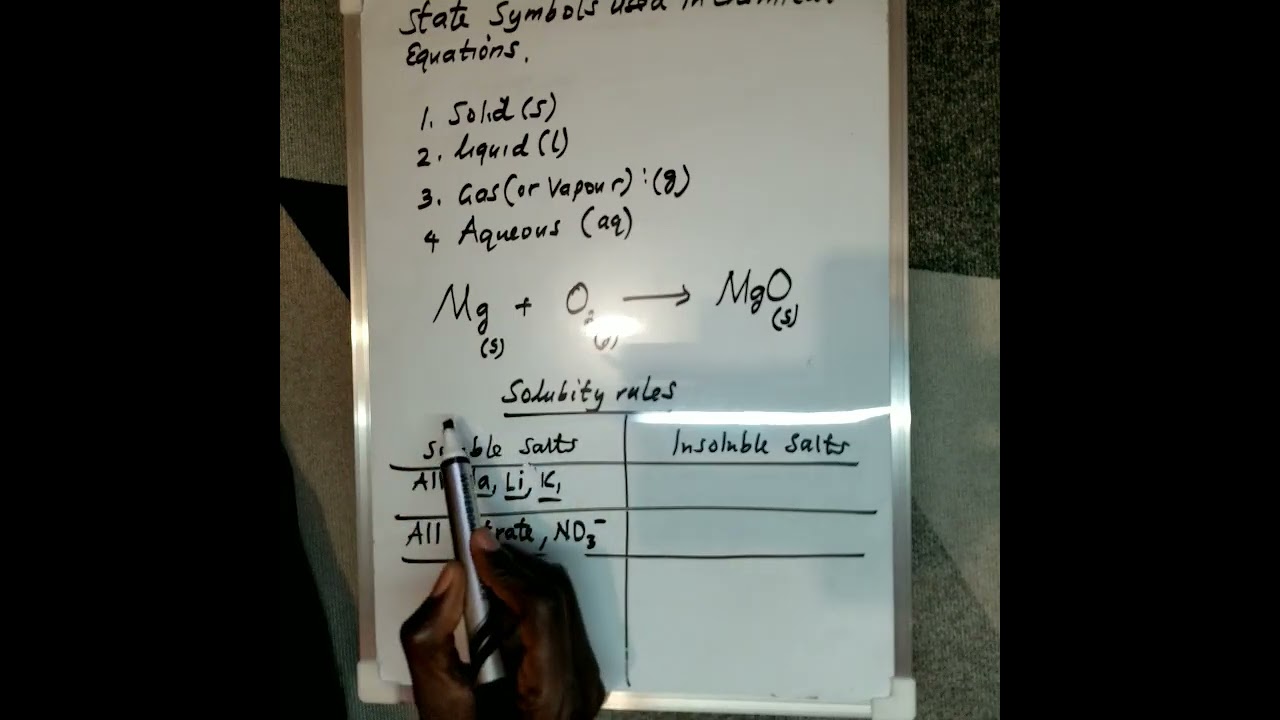 State Symbols used in Chemical
Equations.
1. Solid (s)
2. Liquid (l)
3. Gas (or Vapour) : (g)
4 Aqueous (aq)
Mg(s) + O₂(g) → MgO(s)
Solubity rules
Soluble Salts Insoluble Salts
All Na, Li, K,
All Nitrate, NO₃⁻